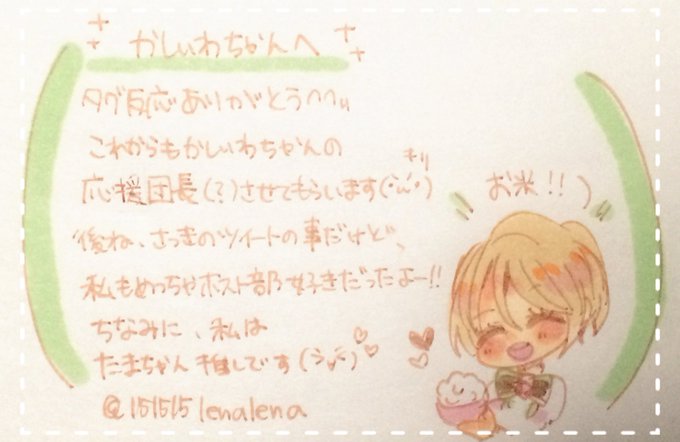 かしいわちゃんへ
タグ反応ありがとう^^"
これからもかしいわちゃんの
応援団長(?)させてもらいます(・`ω´・)キリ
お米!!
後ね、さっきのツイートの事だけど、
私もめっちゃホスト部好きだったよー!!
ちなみに、私は
たまちゃん推しです
@151515lenalena